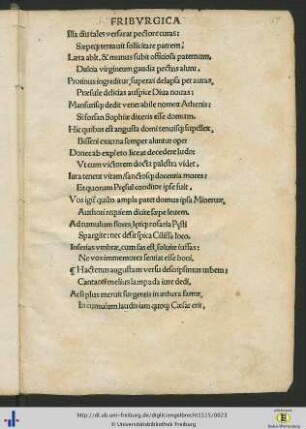 FRIBVRGICA
Illa diu tales versarat pectore curas:
Sæpe tentauit sollicitare patrem:
Læta abit, & munus subit officiosa paternum,
Dulcia virgineum gaudia pectus alunt.
Protinus ingreditur, superas delapsa per auras,
Præsule delicias auspice Diua nouas:
Mansurisq; dedit venerabile nomen Athenis:
Si forsan Sophiæ dixeris esse domum.
Hic quibus est angusta domi tenuisq; supellex,
Bisseni ex æra semper aluntur ope
Donec ab expleto liceat decedere ludo:
Vt cum victorem docta palæstra videt.
Iura tenent vitam, sanctosq; docentia mores:
Et quorum Præsul conditor ipse fuit,
Vos igit quibus ampla patet domus ipsa Mineruæ,
Authori requiem dicite sæpe leuem.
Ad tumulum flores, ipsiq; rosaria Pæsti
Spargite: nec desit spica Cilissa loco.
Inferias vmbræ, cum fas est, soluite iussas:
Ne vos immemores sentiat esse boni,
¶ Hactenus augustam versu descripsimus urbem:
Cantant melius lampada iure dedi,
Ast plus meruit surgentis in æthera famæ,
In cumulum laudis iam quoq; Cæsar erit,
http://dl.ub.uni-freiburg.de/diglit/engelbrecht1515/0023
© Universitätsbibliothek Freiburg